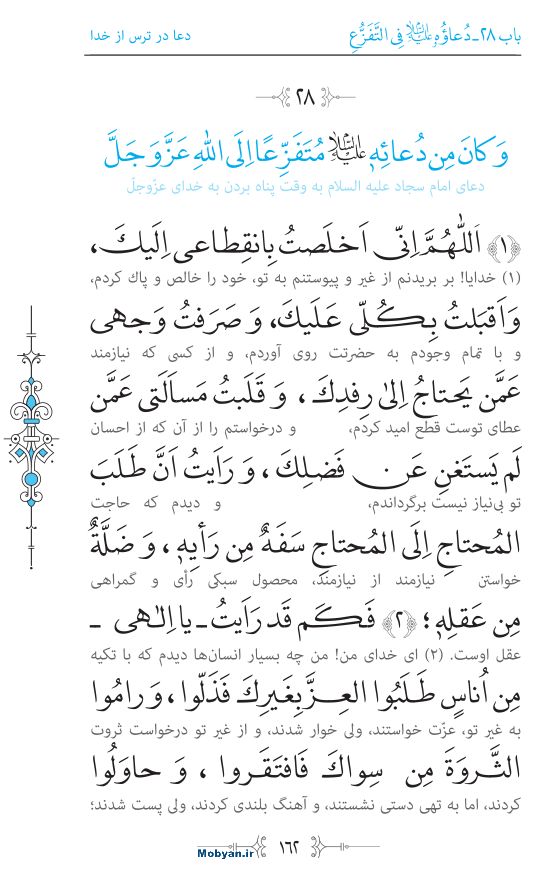 باب ۲۸ـ دُعاؤُهِ علیه‌السلام فِی التَّفَزُّعِ
دعا در ترس از خدا
۲۸
وَ كانَ مِن دُعائِهٖ علیه‌السلام مُتَفَزِّعًا اِلَی اللهِ عَزَّ وَجَلَّ
دعای امام سجاد علیه السلام به وقت پناه بردن به خدای عزّوجلّ
﴿۱﴾ اَللّٰهُمَّ اِنّی اَخلَصتُ بِانقِطاعی اِلَيكَ،
(۱) خدایا! بر بریدنم از غیر و پیوستنم به تو، خود را خالص و پاك كردم،
وَ اَقبَلتُ بِكُلّی عَلَيكَ، وَ صَرَفتُ وَجهی
و با تمام وجودم به حضرتت روی آوردم، و از کسی که نیازمند
عَمَّن يَحتاجُ اِلیٰ رِفدِكَ، وَ قَلَبتُ مَسأَلَتی عَمَّن
عطای توست قطع امید کردم، و درخواستم را از آن که از احسان
لَم يَستَغنِ عَن فَضلِكَ، وَ رَاَيتُ اَنَّ طَلَبَ
تو بی‌نیاز نیست برگرداندم، و دیدم که حاجت
المُحتاجِ اِلَی المُحتاجِ سَفَهٌ مِن رَأيِهٖ، وَ ضَلَّةٌ
خواستن نیازمند از نیازمند، محصول سبکی رأی و گمراهی
مِن عَقلِهٖ؛ ﴿۲﴾ فَكَم قَد رَاَيتُ ـ يا اِلٰهی ـ
عقل اوست. (۲) ای خدای من! من چه بسیار انسان‌ها دیدم که با تکیه
مِن اُناسٍ طَلَبُوا العِزَّ بِغَيرِكَ فَذَلّوا، وَ رامُوا
به غیر تو، عزّت خواستند، ولی خوار شدند، و از غیر تو درخواست ثروت
الثَّروَةَ مِن سِواكَ فَافتَقَروا، وَ حاوَلُوا
کردند، اما به تهی دستی نشستند، و آهنگ بلندی کردند، ولی پست شدند؛
۱۶۲
Mobyan.ir